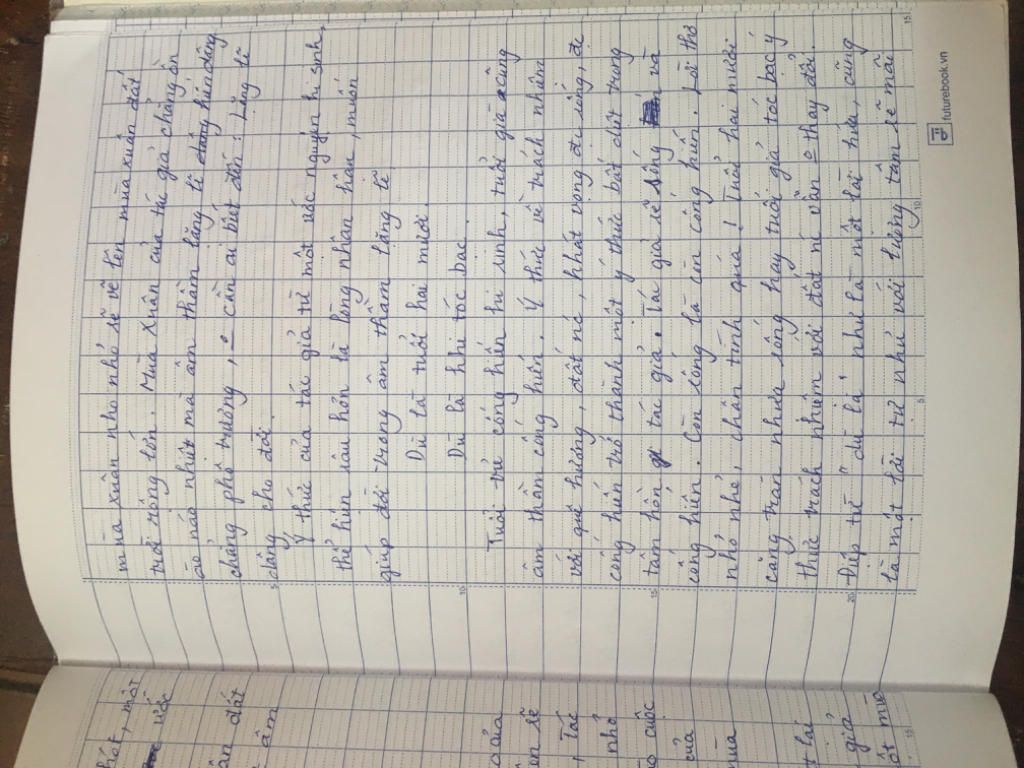 hót, một
ước
ân đất
âm
của
ên sẽ
Tác
nhỏ
cuộc
của
mùa
t lái
giả
mùa xuân nho nhỏ nhỏ sẽ vẽ lên mùa xuân đất
trời rộng lớn. Mùa Xuân của tác giả chẳng ồn
ào náo nhiệt mà âm thầm lặng lẽ dâng hiến dâng
chẳng phô trương, o cần ai biết đến: Lặng lẽ
dâng cho đời.
Ý thức của tác giả từ một ước nguyện hi sinh,
thể hiện sâu hơn là lòng nhân hậu, muốn
giúp đời trong âm thầm lặng lẽ
Dù là tuổi hai mươi.
Dù là khi tóc bạc.
Tuổi trẻ cống hiến hi sinh, tuổi già cũng
âm thần cống hiến. Ý thức về trách nhiệm
với quê hương, đất nc, khát vọng đi sống, đi
cống hiến trở thành một ý thức bất dứt trong
tâm hồn tác giả. Tác giả sẽ sống và
cống hiến. Còn sống là còn cống hiến. Lời thơ
nhỏ nhẻ, chân tình quá! Tuổi hai mươi
căng tràn nhựa sống hay tuổi già tóc bạc ý
thức trách nhiệm với đất nc vẫn o thay đổi.
Điệp từ "dù là" như là một lời hứa, cũng
là một lời tự nhủ với lương tâm sẽ mãi
5
10
15
20
5
10
15
futurebook.vn